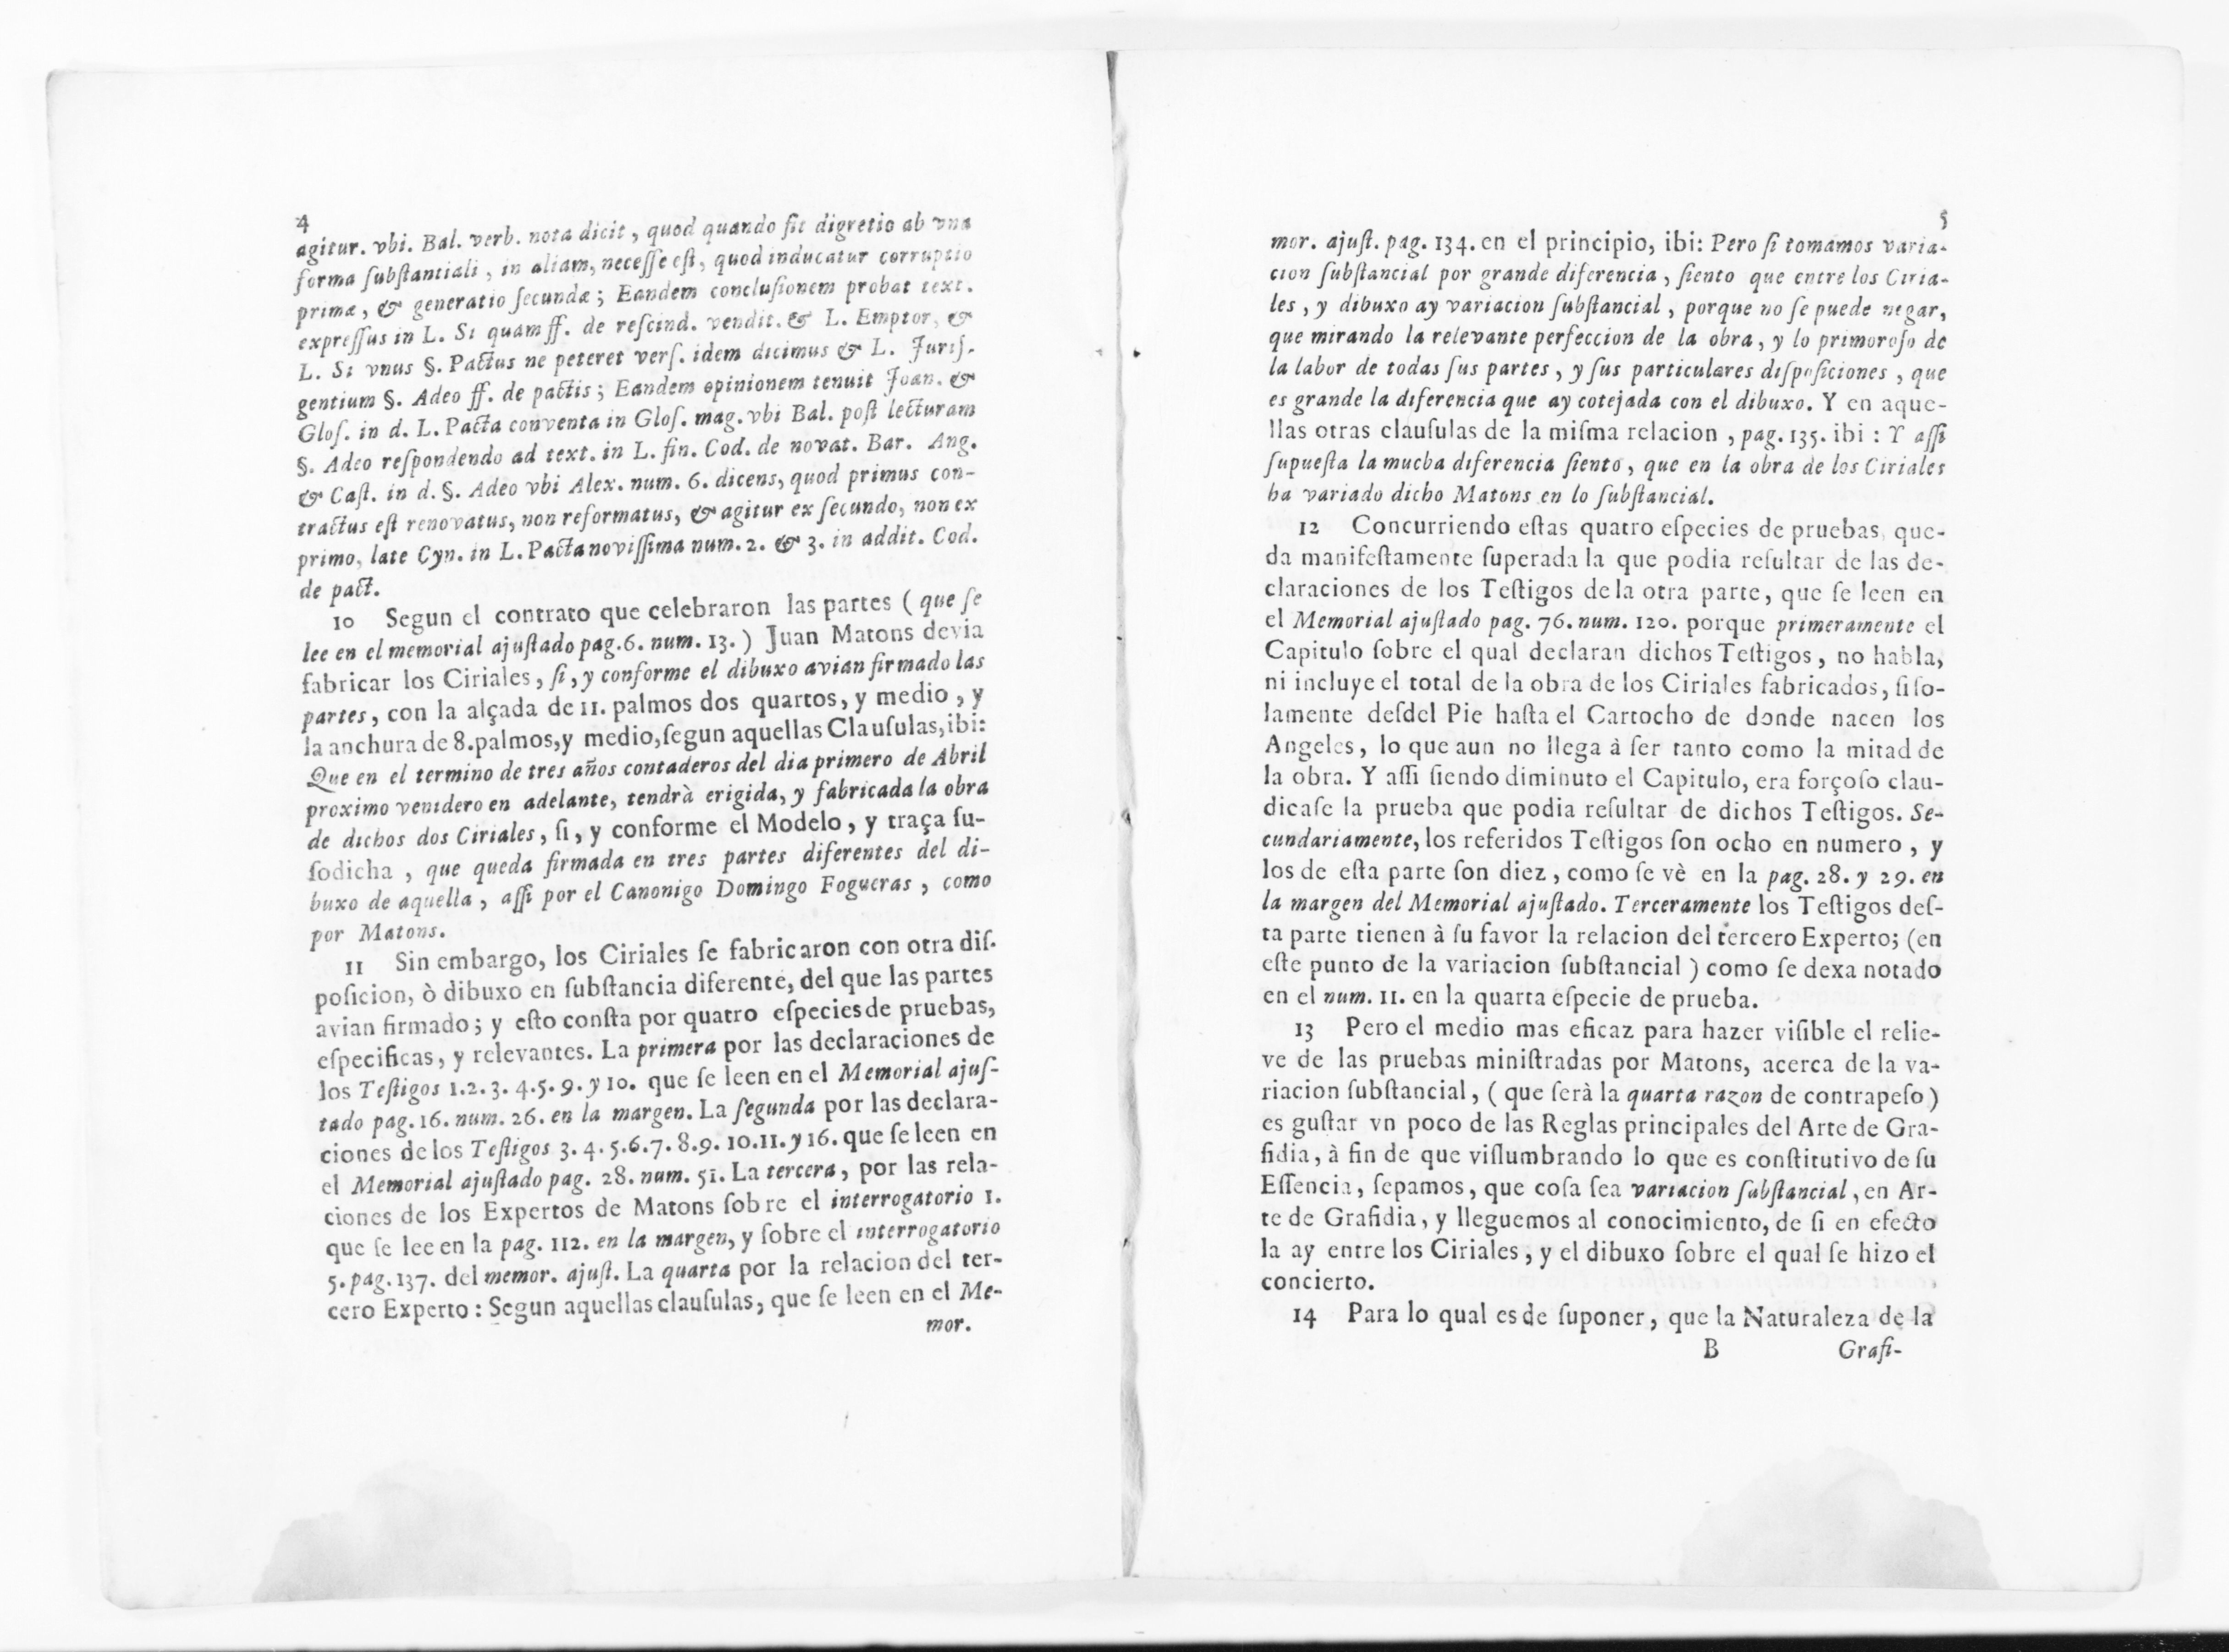 4
agitur. vbi. Bal. verb. nota dicit, quod quando fit digretio ab vna
forma ſubſtantiali, in aliam, neceſſe eſt, quod inducatur corruptio
primæ, & generatio ſecundæ; Eandem concluſionem probat text.
expreſſus in L. Si quam ff. de reſcind. vendit. & L. Emptor, &
L. Si vnus §. Pactus ne peteret verſ. idem dicimus & L. Juriſ-
gentium §. Adeo ff. de pactis; Eandem opinionem tenuit Joan. &
Gloſ. in d. L. Pacta conventa in Gloſ. mag. vbi Bal. poſt lecturam
§. Adeo reſpondendo ad text. in L. fin. Cod. de novat. Bar. Ang.
& Caſt. in d. §. Adeo vbi Alex. num. 6. dicens, quod primus con-
tractus eſt renovatus, non reformatus, & agitur ex ſecundo, non ex
primo, late Cyn. in L. Pacta noviſſima num. 2. & 3. in addit. Cod.
de pact.
10 Segun el contrato que celebraron las partes ( que ſe
lee en el memorial ajuſtado pag. 6. num. 13. ) Juan Matons devia
fabricar los Ciriales, ſi, y conforme el dibuxo avian firmado las
partes, con la alçada de 11. palmos dos quartos, y medio, y
la anchura de 8. palmos, y medio, ſegun aquellas Clauſulas, ibi:
Que en el termino de tres años contaderos del dia primero de Abril
proximo venidero en adelante, tendrà erigida, y fabricada la obra
de dichos dos Ciriales, ſi, y conforme el Modelo, y traça ſu-
ſodicha, que queda firmada en tres partes diferentes del di-
buxo de aquella, aſſi por el Canonigo Domingo Fogueras, como
por Matons.
11 Sin embargo, los Ciriales ſe fabricaron con otra diſ-
poſicion, ò dibuxo en ſubſtancia diferente, del que las partes
avian firmado; y eſto conſta por quatro eſpecies de pruebas,
eſpecificas, y relevantes. La primera por las declaraciones de
los Teſtigos 1. 2. 3. 4. 5. 9. y 10. que ſe leen en el Memorial ajuſ-
tado pag. 16. num. 26. en la margen. La ſegunda por las declara-
ciones de los Teſtigos 3. 4. 5. 6. 7. 8. 9. 10. 11. y 16. que ſe leen en
el Memorial ajuſtado pag. 28. num. 51. La tercera, por las rela-
ciones de los Expertos de Matons ſobre el interrogatorio 1.
que ſe lee en la pag. 112. en la margen, y ſobre el interrogatorio
5. pag. 137. del memor. ajuſt. La quarta por la relacion del ter-
cero Experto: Segun aquellas clauſulas, que ſe leen en el Me-
mor.
5
mor. ajuſt. pag. 134. en el principio, ibi: Pero ſi tomamos varia-
cion ſubſtancial por grande diferencia, ſiento que entre los Ciria-
les, y dibuxo ay variacion ſubſtancial, porque no ſe puede negar,
que mirando la relevante perfeccion de la obra, y lo primoroſo de
la labor de todas ſus partes, y ſus particulares diſpoſiciones, que
es grande la diferencia que ay cotejada con el dibuxo. Y en aque-
llas otras clauſulas de la miſma relacion, pag. 135. ibi: Y aſſi
ſupueſta la mucha diferencia ſiento, que en la obra de los Ciriales
ha variado dicho Matons en lo ſubſtancial.
12 Concurriendo eſtas quatro eſpecies de pruebas, que-
da manifeſtamente ſuperada la que podia reſultar de las de-
claraciones de los Teſtigos de la otra parte, que ſe leen en
el Memorial ajuſtado pag. 76. num. 120. porque primeramente el
Capitulo ſobre el qual declaran dichos Teſtigos, no habla,
ni incluye el total de la obra de los Ciriales fabricados, ſi ſo-
lamente deſdel Pie haſta el Cartocho de donde nacen los
Angeles, lo que aun no llega à ſer tanto como la mitad de
la obra. Y aſſi ſiendo diminuto el Capitulo, era forçoſo clau-
dicaſe la prueba que podia reſultar de dichos Teſtigos. Se-
cundariamente, los referidos Teſtigos ſon ocho en numero, y
los de eſta parte ſon diez, como ſe vè en la pag. 28. y 29. en
la margen del Memorial ajuſtado. Terceramente los Teſtigos deſ-
ta parte tienen à ſu favor la relacion del tercero Experto; (en
eſte punto de la variacion ſubſtancial ) como ſe dexa notado
en el num. 11. en la quarta eſpecie de prueba.
13 Pero el medio mas eficaz para hazer viſible el relie-
ve de las pruebas miniſtradas por Matons, acerca de la va-
riacion ſubſtancial, ( que ſerà la quarta razon de contrapeſo )
es guſtar vn poco de las Reglas principales del Arte de Gra-
fidia, à fin de que viſlumbrando lo que es conſtitutivo de ſu
Eſſencia, ſepamos, que coſa ſea variacion ſubſtancial, en Ar-
te de Grafidia, y lleguemos al conocimiento, de ſi en efecto
la ay entre los Ciriales, y el dibuxo ſobre el qual ſe hizo el
concierto.
14 Para lo qual es de ſuponer, que la Naturaleza de la
B Grafi-